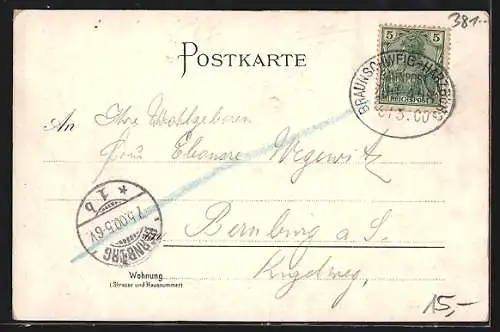 381.-
POSTKARTE
5 5
REICHSPOST
BRAUNSCHWEIG-HARZBURG
An Ihre Wohlgeboren
Frau Eleonore Wegewitz
* 1 b
7.5.00.5-6V.
BERNBURG
Bernburg a. S.
Wohnung
(Strasse und Hausnummer)
15,-